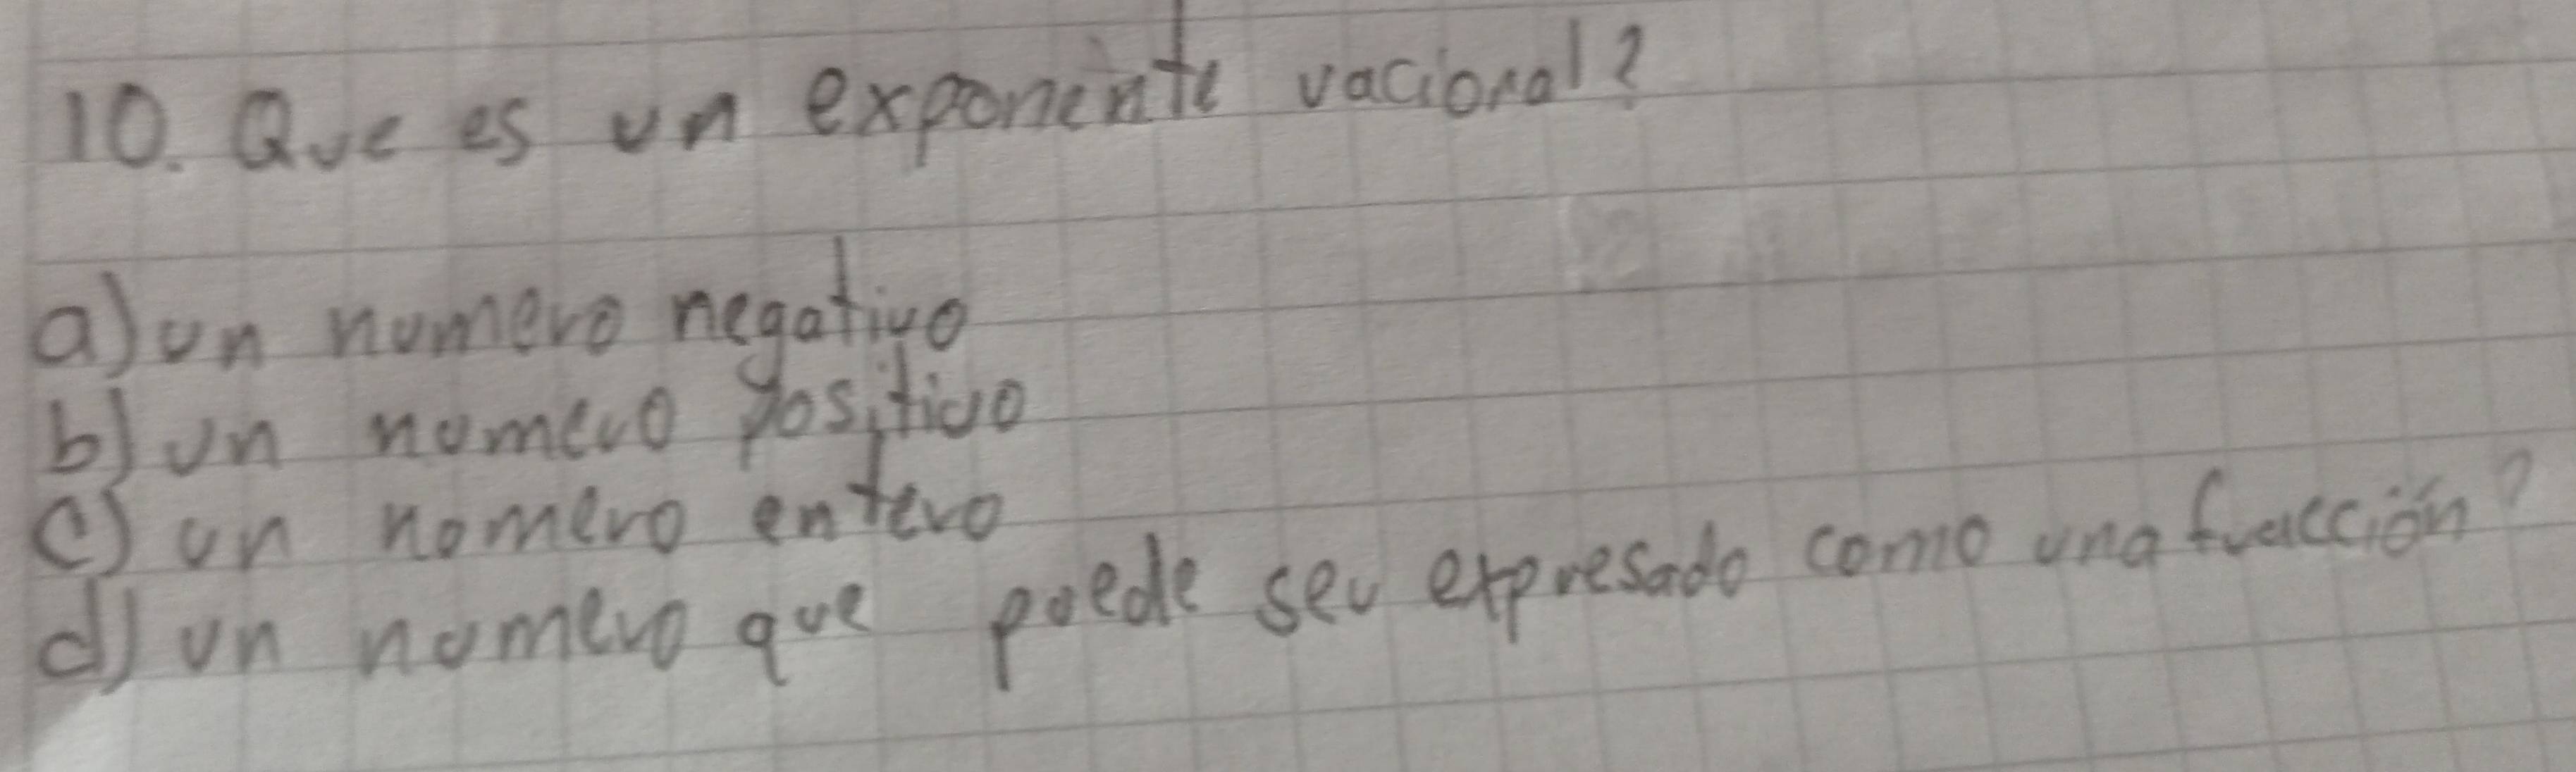 10. Que es un exponente racional?
a) un numero negativo
b) un numero positivo
c) un numero entero
d) un numero que puede ser expresado como una fracción?